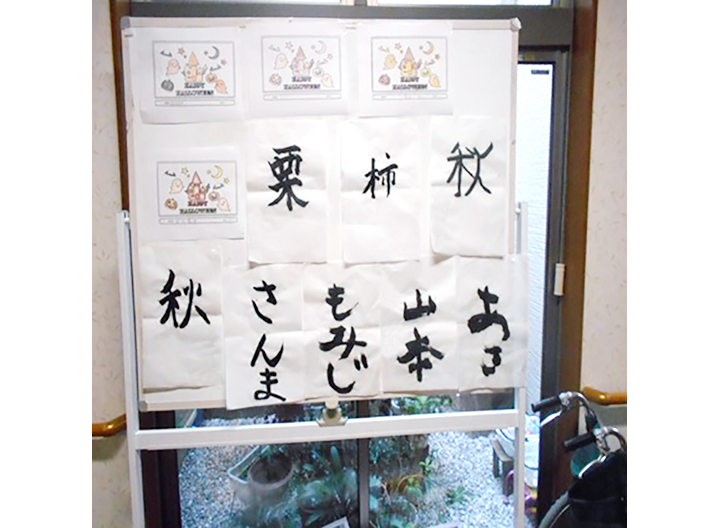 HAPPY
HALLOWEEN
HAPPY
HALLOWEEN
HAPPY
HALLOWEEN
HAPPY
HALLOWEEN
栗
柿
秋
秋
さんま
もみじ
山本
あき